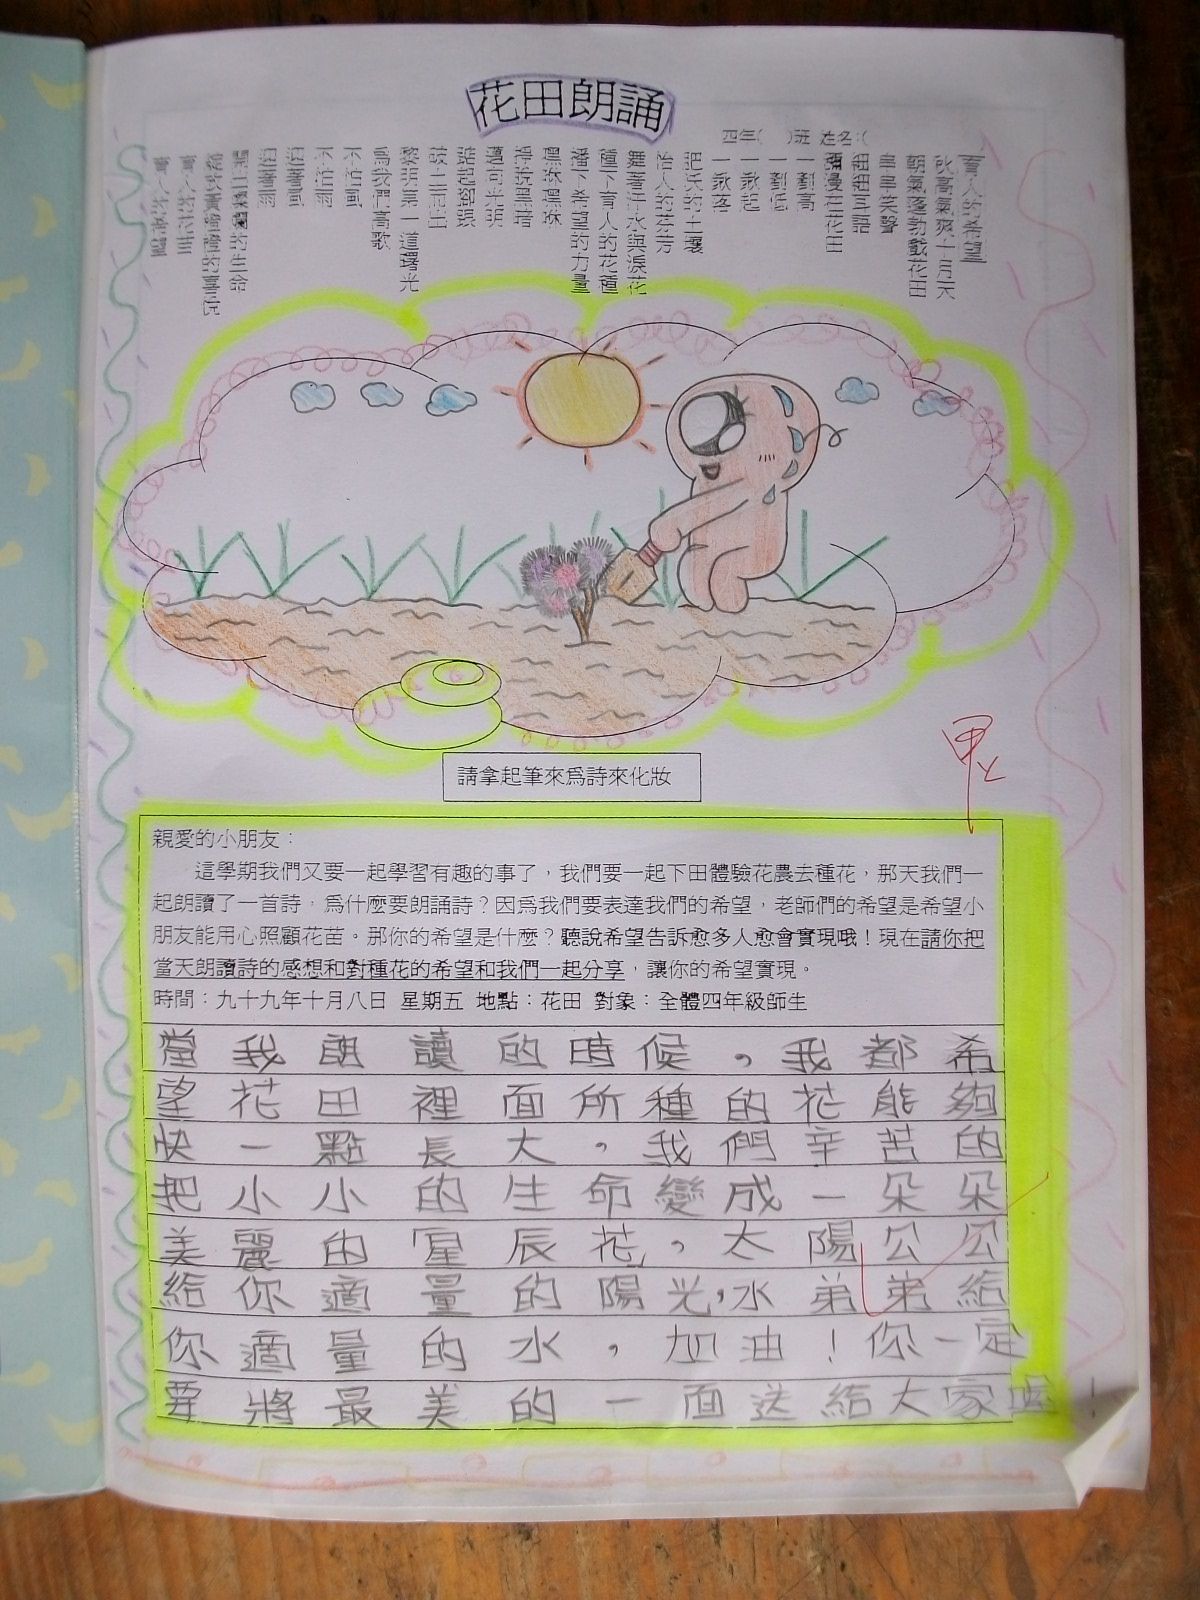 花田朗誦
四年( )班 姓名:(
育人的希望
秋高氣爽十月天
朝氣蓬勃戲花田
串串笑聲
細細耳語
瀰漫在花田
一劃高
一劃低
一鍬起
一鍬落
肥沃的土壤
怡人的芬芳
舞著汗水與淚花
種下育人的花種
播下希望的力量
黑珠黑珠
掙脫黑暗
邁向光明
鼓起勁
黎明第一道曙光
為我們高歌
不怕風
不怕雨
迎著風
迎著雨
開出燦爛的生命
育人的花田
育人的希望
請拿起筆來為詩來化妝
甲上
親愛的小朋友：
這學期我們又要一起學習有趣的事了，我們要一起下田體驗花農去種花，那天我們一
起朗讀了一首詩，為什麼要朗誦詩？因為我們要表達我們的希望，老師們的希望是希望小
朋友能用心照顧花苗。那你的希望是什麼？聽說希望告訴愈多人愈會實現哦！現在請你把
當天朗讀詩的感想和對種花的希望和我們一起分享，讓你的希望實現。
時間：九十九年十月八日 星期五 地點：花田 對象：全體四年級師生
當我朗讀的時候，我都希
望花田裡面所種的花能夠
快一點長大，我們辛苦的
把小小的生命變成一朵朵
美麗的星辰花，太陽公公
給你適量的陽光，水弟弟給
你適量的水，加油！你一定
要將最美的一面送給大家喔！